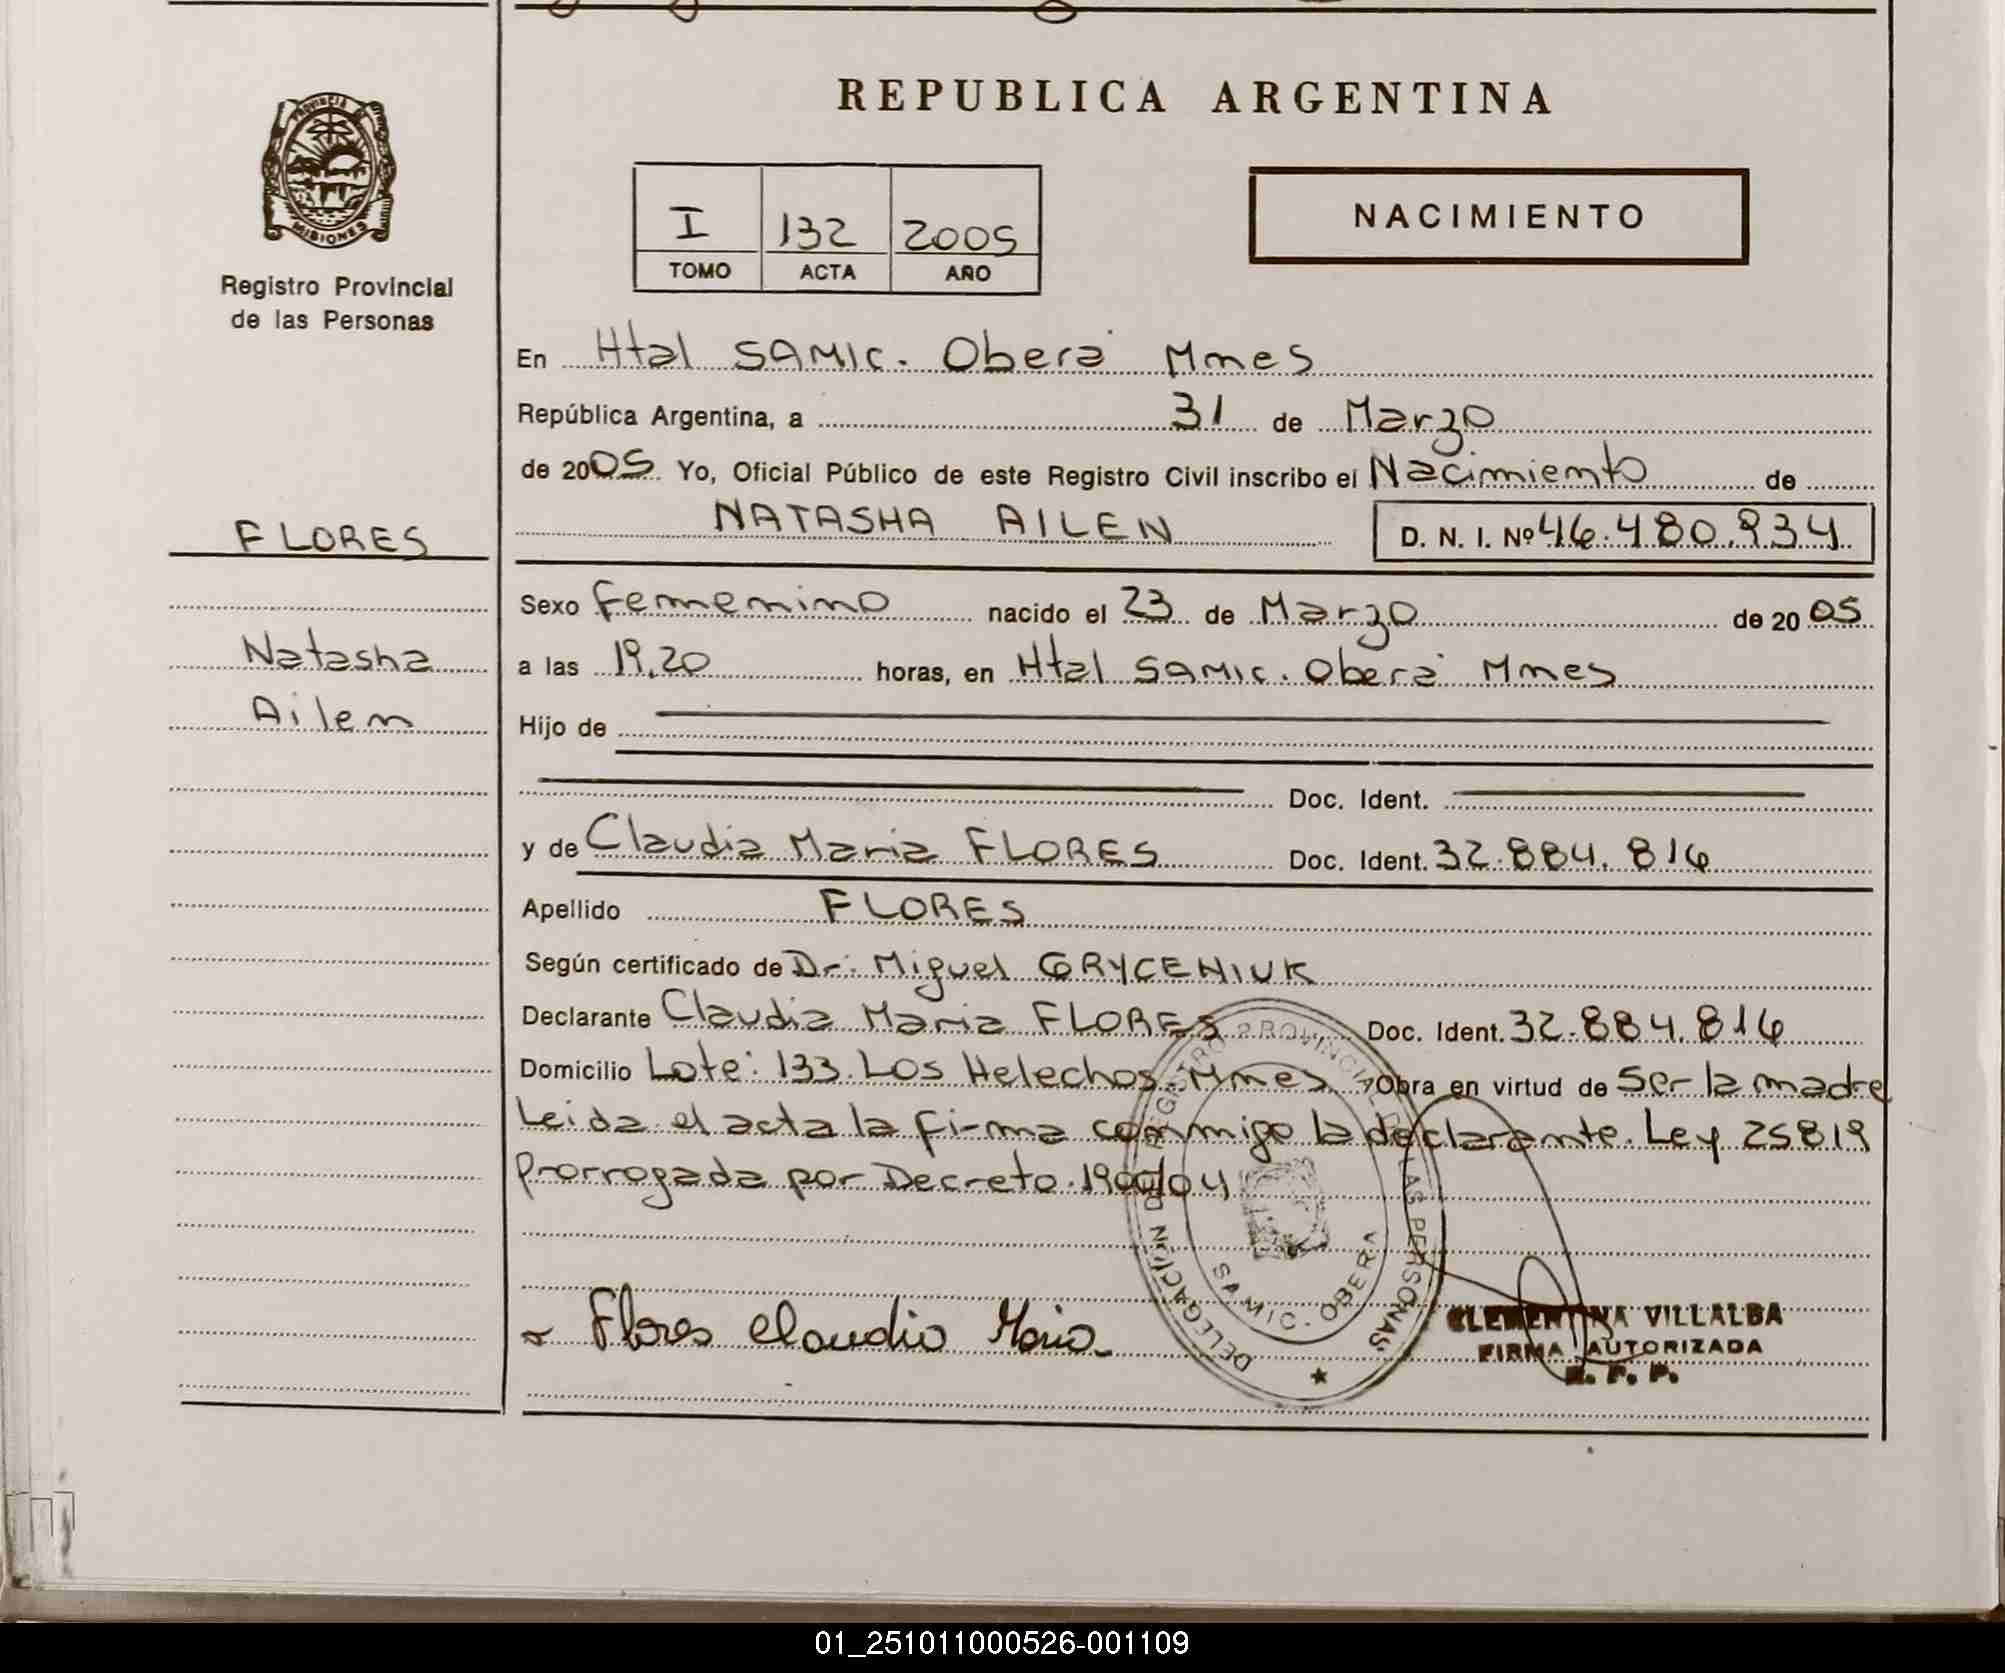 REPUBLICA ARGENTINA
PROVINCIA
MISIONES
Registro Provincial
de las Personas
I 132 2005
TOMO ACTA AÑO
NACIMIENTO
En Htal SAMIC. Oberá Mnes
República Argentina, a 31 de Marzo
de 2005 Yo, Oficial Público de este Registro Civil inscribo el Nacimiento de
NATASHA AILEN D. N. I. Nº 46.480.934
FLORES
Natasha
Ailen
Sexo Femenino nacido el 23 de Marzo de 2005
a las 19.20 horas, en Htal SAMIC. Oberá Mnes
Hijo de
Doc. Ident.
y de Claudia Maria FLORES Doc. Ident. 32.884.816
Apellido FLORES
Según certificado de Dr. Miguel GRYCENIUK
Declarante Claudia Maria FLORES Doc. Ident. 32.884.816
Domicilio Lote: 133. Los Helechos. Mnes Obra en virtud de Ser la madre
Leida el acta la firma conmigo la declarante. Ley 25819
Prorrogada por Decreto. 1900/04
DELEGACIÓN DEL REGISTRO PROVINCIAL DE LAS PERSONAS
SAMIC. OBERA
Flores Claudia Maria
CLEMENTINA VILLALBA
FIRMA AUTORIZADA
R. P. P.
01_251011000526-001109